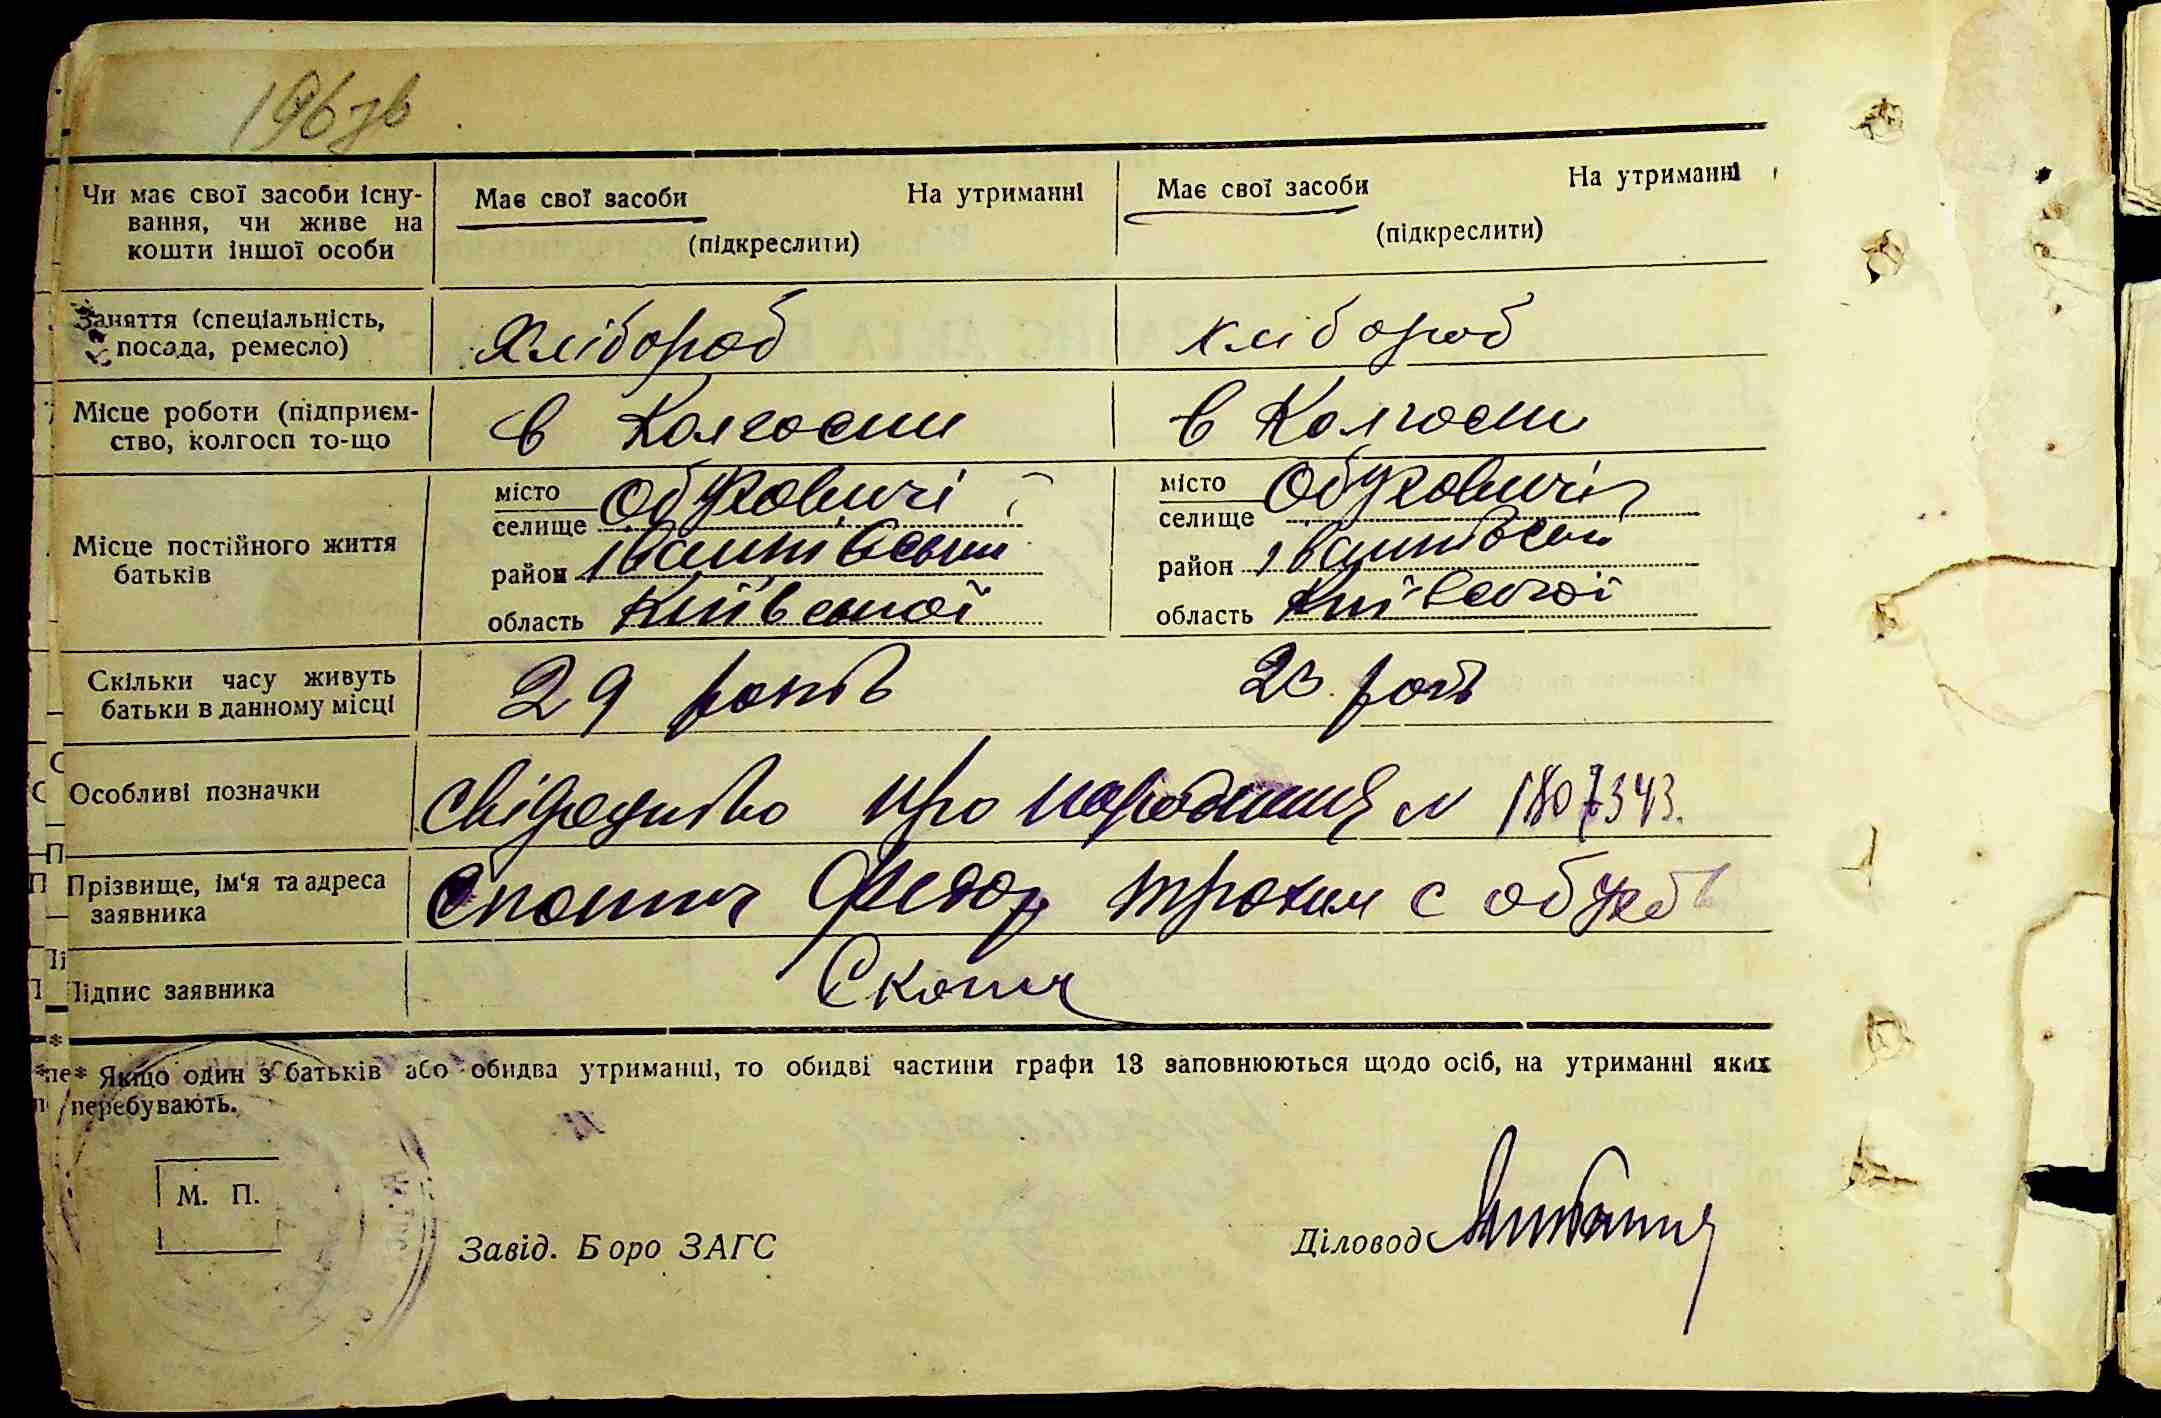 196 зв
Чи має свої засоби існу-
вання, чи живе на
кошти іншої особи
Має свої засоби На утриманні
(підкреслити)
Має свої засоби На утриманні
(підкреслити)
Заняття (спеціальність,
посада, ремесло)
Хлібороб
хлібороб
Місце роботи (підприєм-
ство, колгосп то-що
в Колгоспи
в Колгоспи
Місце постійного життя
батьків
місто
селище Обуховичі
район Іванківський
область Київської
місто
селище Обуховичі
район Іванківськ
область Київської
Скільки часу живуть
батьки в данному місці
29 років
23 рок
Особливі позначки
свідоцтво про народження N 1807343.
Прізвище, ім'я та адреса
заявника
Скопич Федор Трохим с Обухов
Підпис заявника
Скопич
* Якщо один з батьків або обидва утриманці, то обидві частини графи 13 заповнюються щодо осіб, на утриманні яких
перебувають.
М. П.
Завід. Боро ЗАГС
Діловод